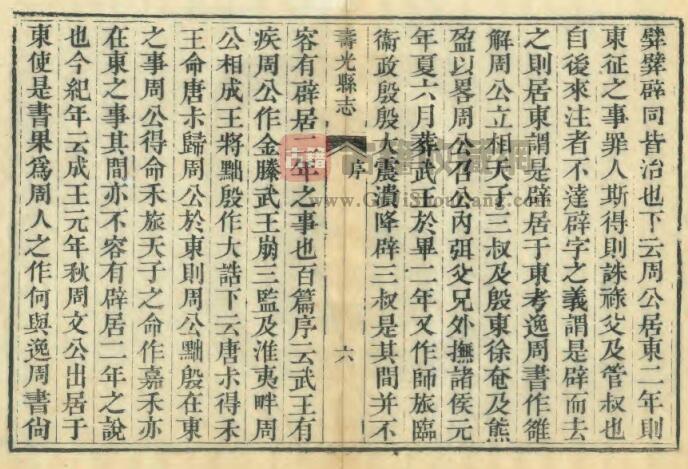 嬖嬖辟同皆治也下云周公居東二年則
東征之事罪人斯得則誅祿父及管叔也
自後來注者不達辟字之義謂是辟而去
之則居東謂是辟居于東考逸周書作雒
解周公立相天子三叔及殷東徐奄及熊
盈以畧周公召公內弭父兄外撫諸侯元
年夏六月葬武王於畢二年又作師旅臨
衞政殷殷大震潰降辟三叔是其間並不
壽光縣志
序
六
容有辟居二年之事也百篇序云武王有
疾周公作金縢武王崩三監及淮夷畔周
公相成王將黜殷作大誥下云唐未得禾
王命唐未歸周公於東則周公黜殷在東
之事周公得命禾旅天子之命作嘉禾亦
在東之事其間亦不容有辟居二年之說
也今紀年云成王元年秋周文公出居于
東使是書果爲周人之作何與逸周書尙
www.GujiShuFang.com